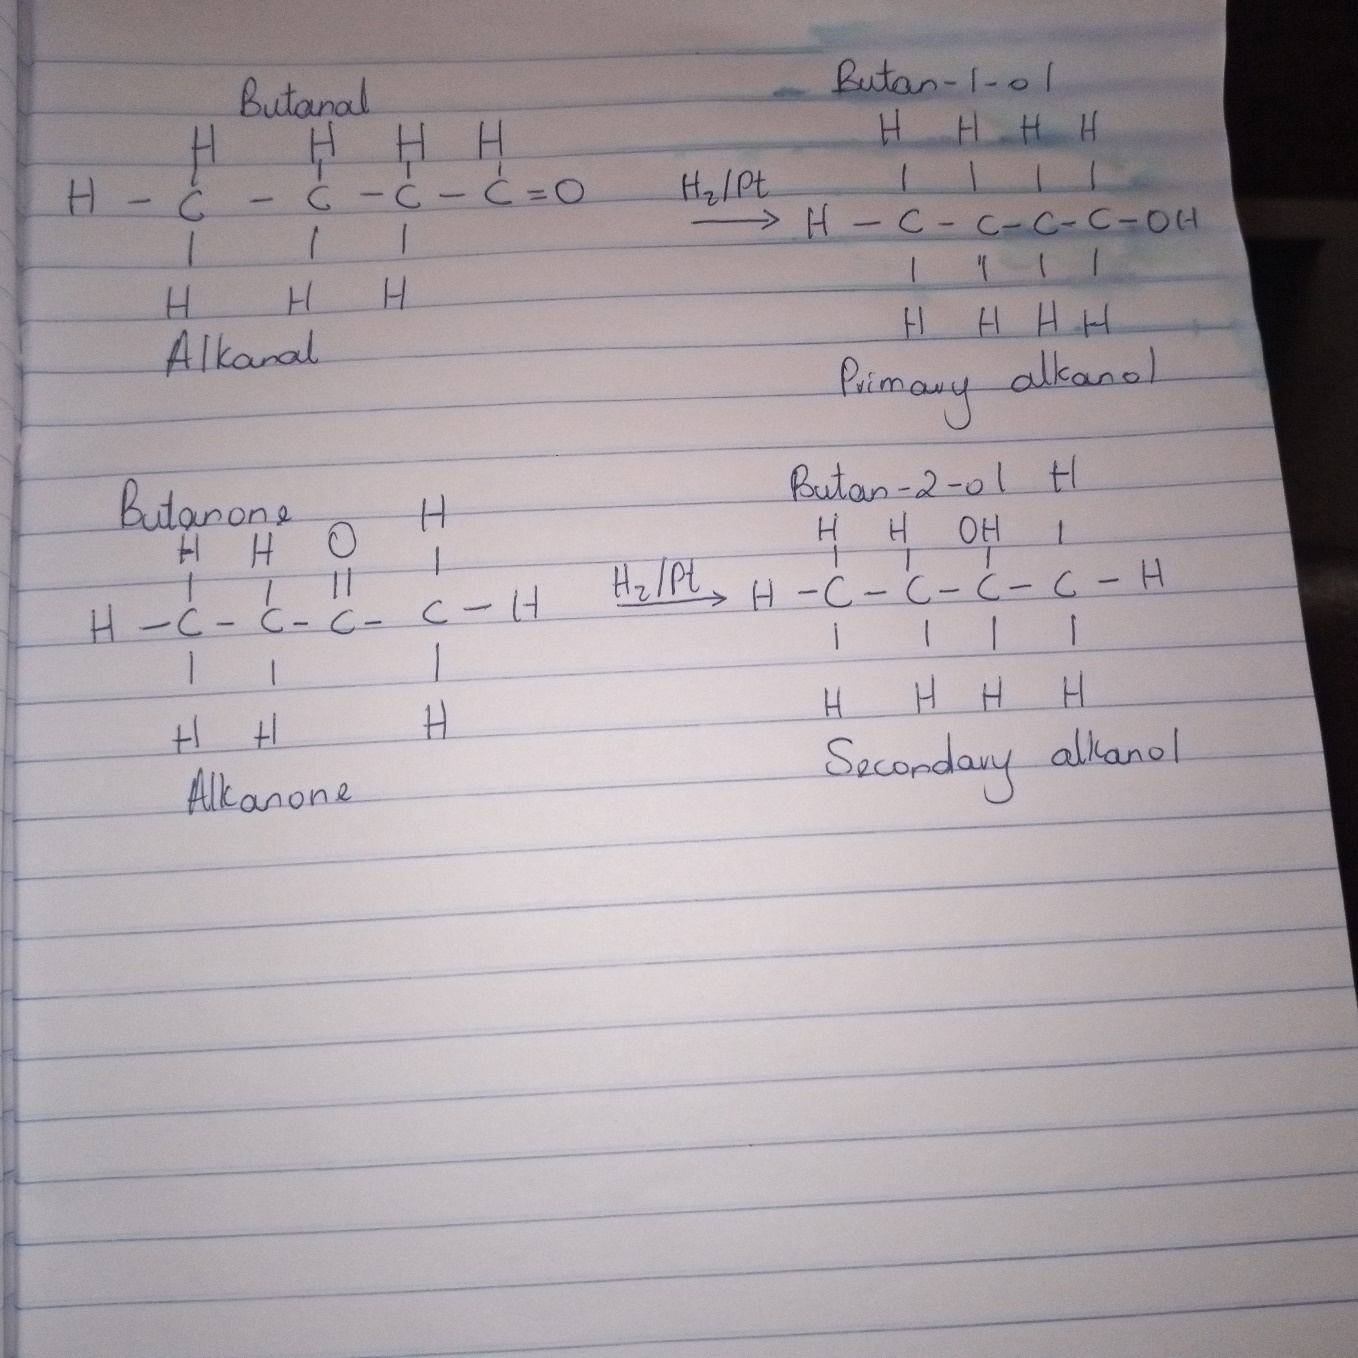 Butanal
H H H H
H - C - C - C - C = O
| | |
H H H
Alkanal
H₂/Pt
→
Butan-1-ol
H H H H
| | | |
H - C - C - C - C - OH
| | | |
H H H H
Primary alkanol
Butanone
H H O H
| | || |
H - C - C - C - C - H
| | |
H H H
Alkanone
H₂/Pt
→
Butan-2-ol
H H OH H
| | | |
H - C - C - C - C - H
| | | |
H H H H
Secondary alkanol